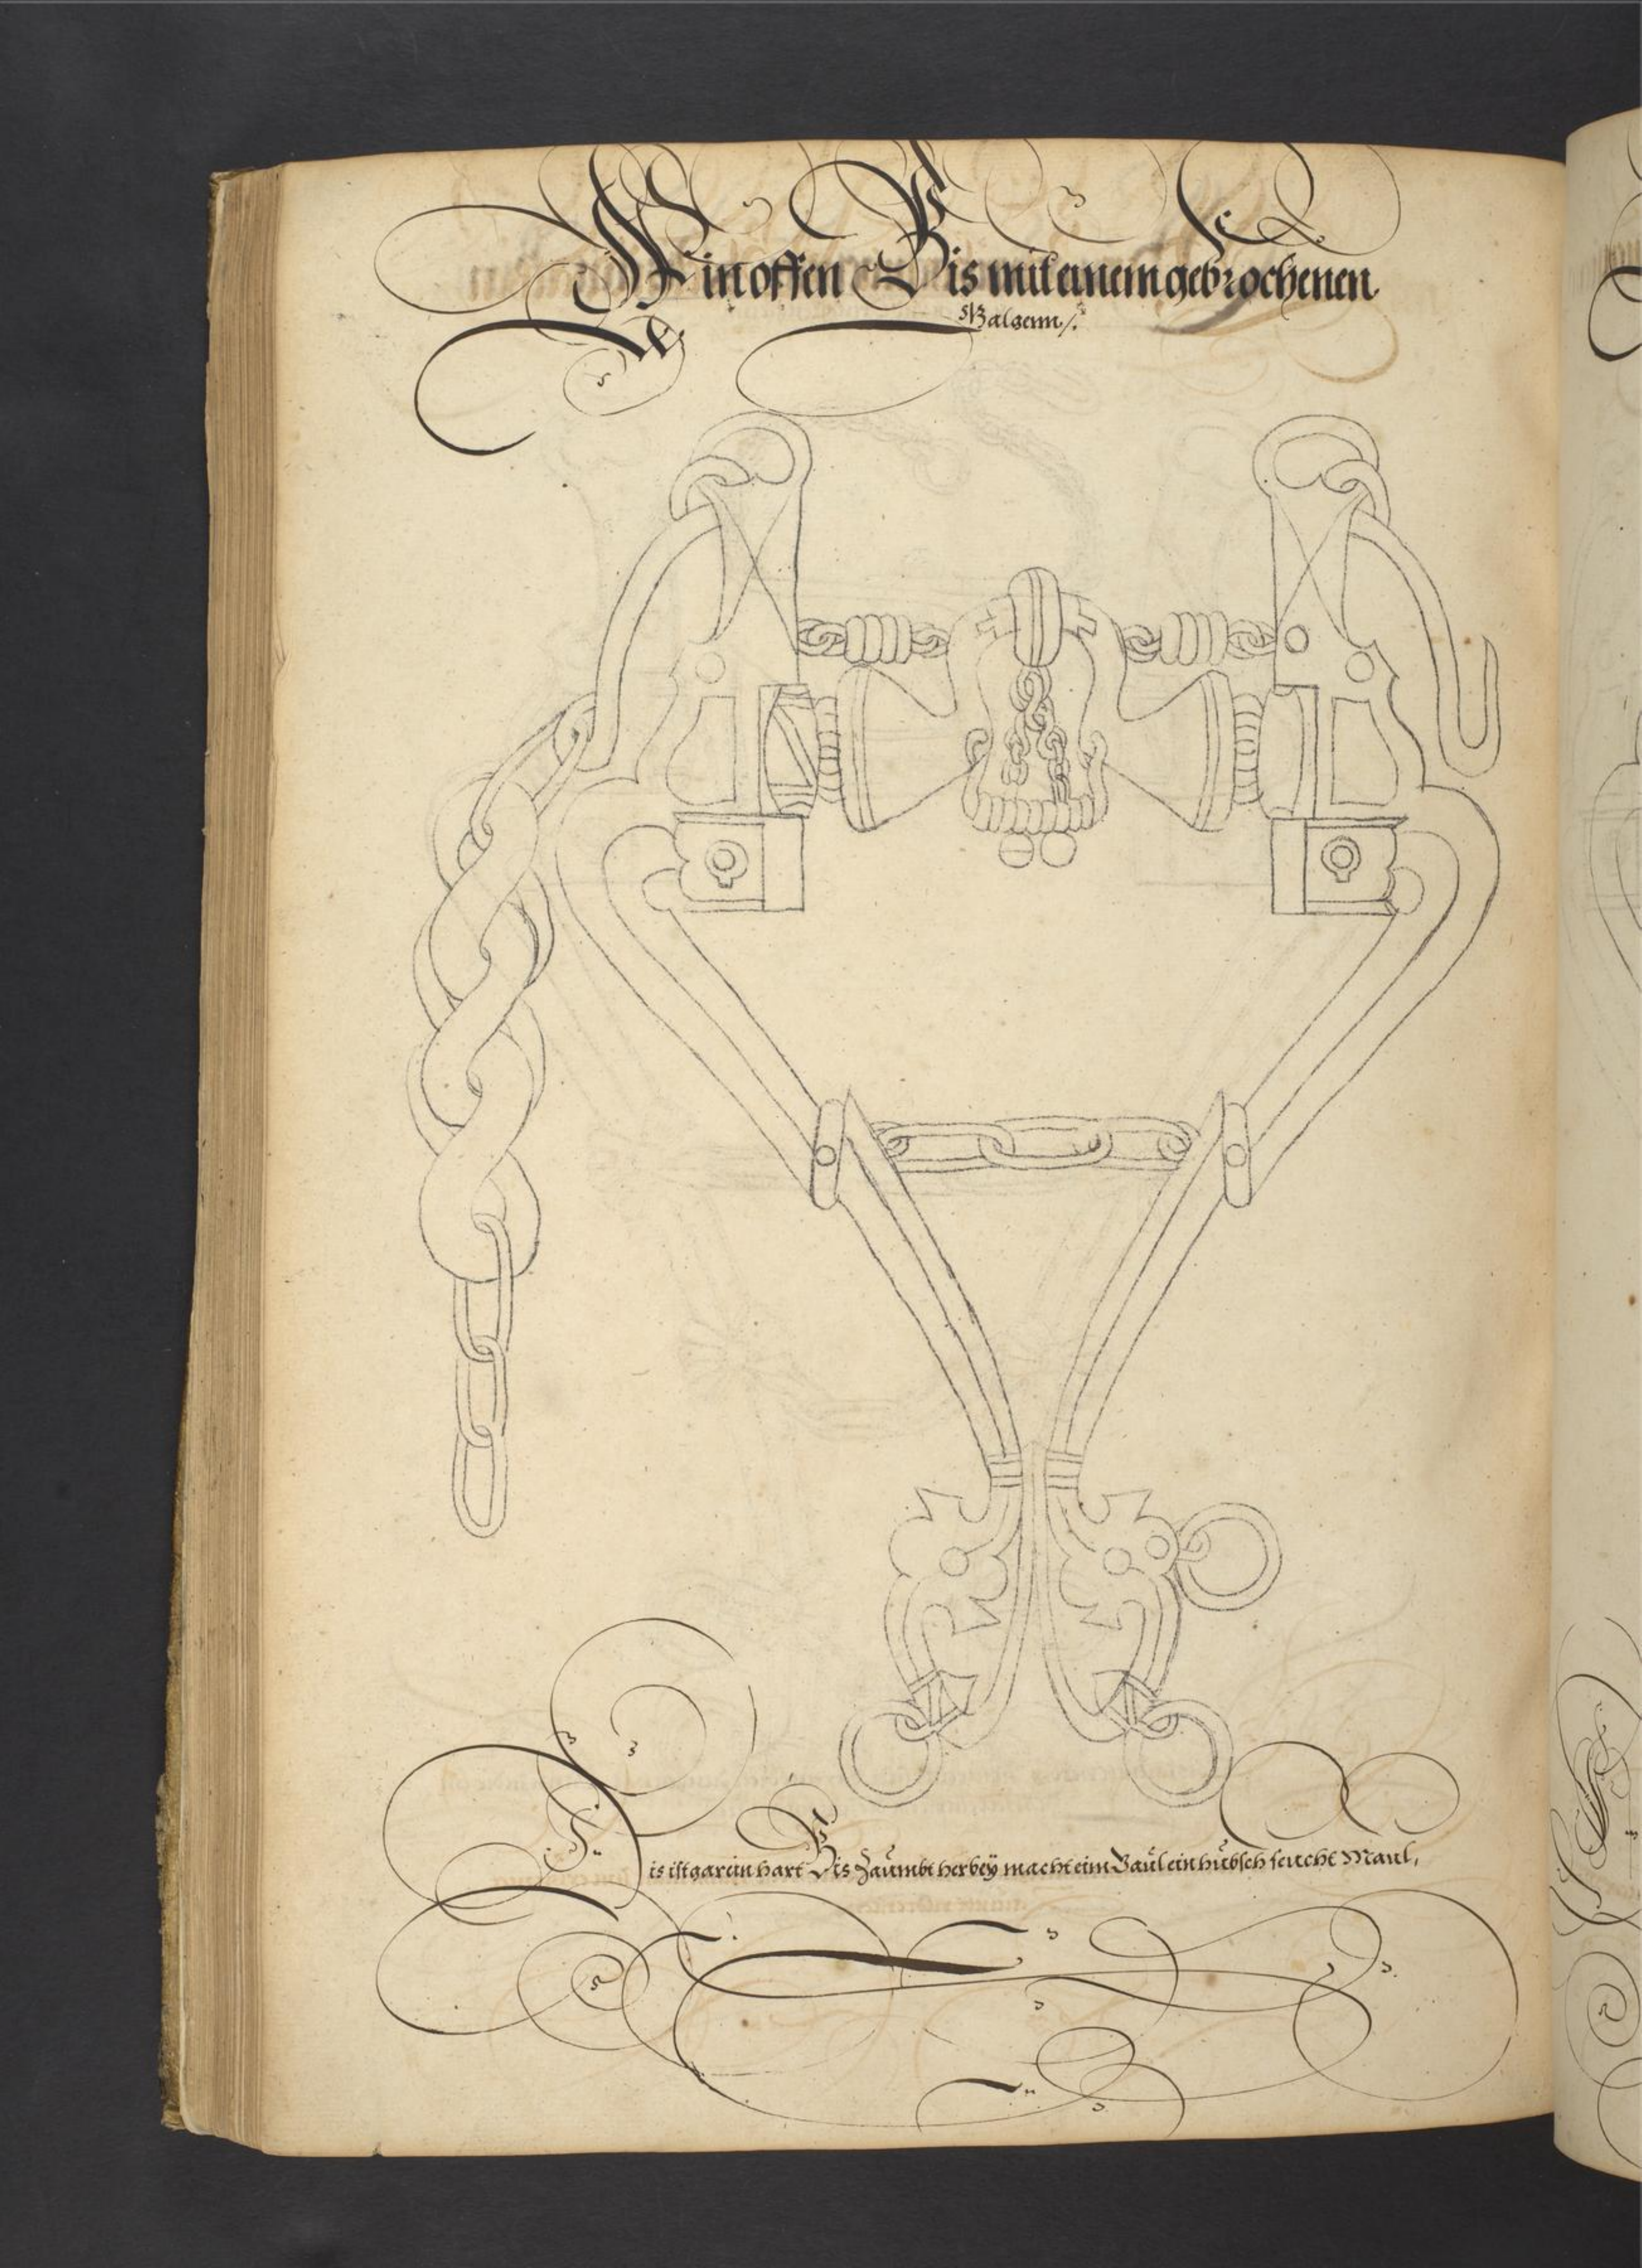 Ein offen Bis mit einem gebrochenen
Galgenn /.
Dis ist gar ein hart Bis Zaümbt herbeÿ macht eim Gaül ein hübsch feücht Maul,